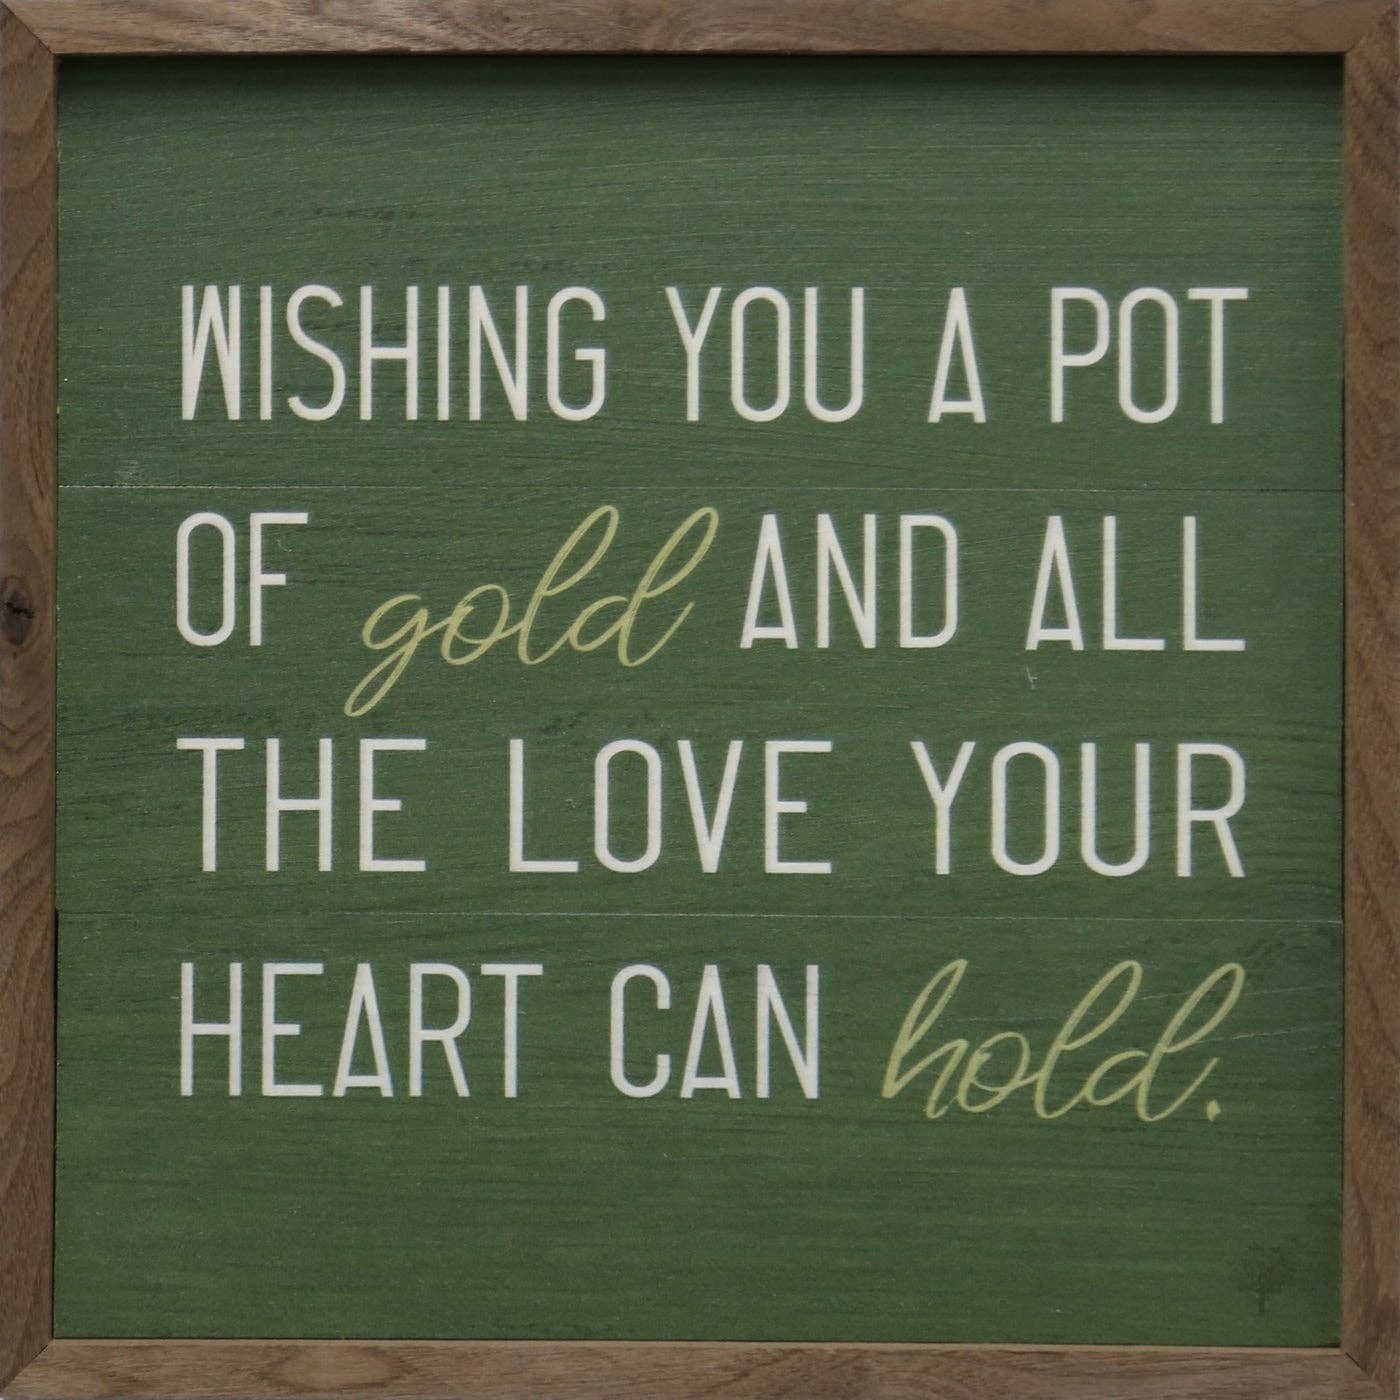 WISHING YOU A POT
OF gold AND ALL
THE LOVE YOUR
HEART CAN hold.